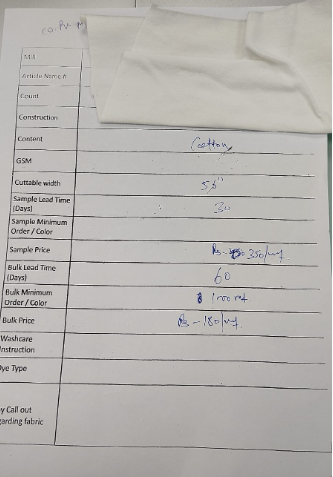 Mill
Article Name #
Count
Construction
Content Cotton
GSM
Cuttable width 58"
Sample Lead Time (Days) 30
Sample Minimum Order / Color
Sample Price Rs- 350/mt
Bulk Lead Time (Days) 60
Bulk Minimum Order / Color 1000 mt
Bulk Price Rs - 180/mt
Washcare Instruction
ye Type
y Call out
arding fabric